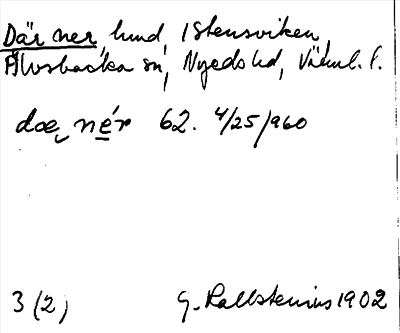 Där ner, hund, Istensviken,
Alvsbacka sn, Nyeds hd, Värml. l.
doe, nér 62. 4/25/960
3 (2) G. Kallstenius 1902